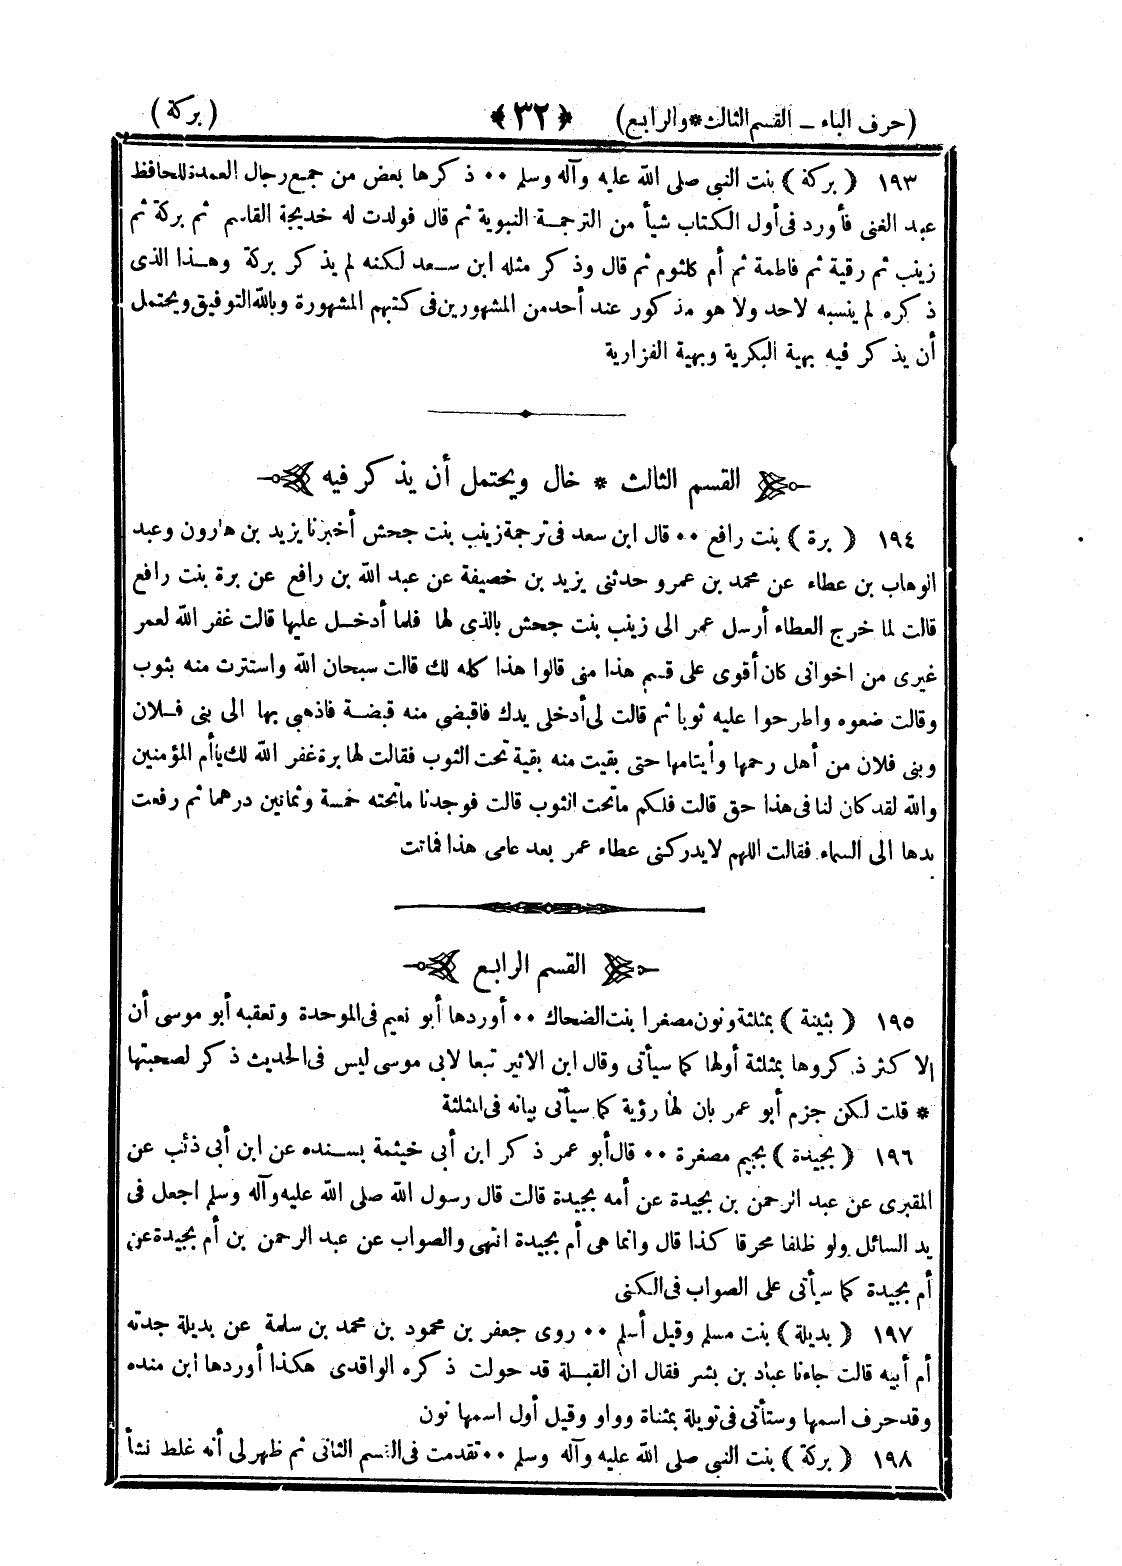 (حرف الباء ــ القسم الثالث * والرابع) ﴿ ٣٢ ﴾ (بركة)
١٩٣ ﴿ بركة ﴾ بنت النبى صلى الله عليه وآله وسلم ٠٠ ذكرها بعض من جمع رجال العمدة للحافظ
عبد الغنى فأورد فى أول الكتاب شيأ من الترجمة النبوية ثم قال فولدت له خديجة القاسم ثم بركة ثم
زينب ثم رقية ثم فاطمة ثم أم كلثوم ثم قال وذكر مثله ابن سعد لكنه لم يذكر بركة وهذا الذى
ذكره لم ينسبه لاحد ولا هو مذكور عند أحد من المشهورين فى كتبهم المشهورة وبالله التوفيق ويحتمل
أن يذكر فيه بهية البكرية وبهية الفزارية
القسم الثالث * خال ويحتمل أن يذكر فيه
١٩٤ ﴿ برة ﴾ بنت رافع ٠٠ قال ابن سعد فى ترجمة زينب بنت جحش أخبرنا يزيد بن هارون وعبد
الوهاب بن عطاء عن محمد بن عمرو حدثنى يزيد بن خصيفة عن عبد الله بن رافع عن برة بنت رافع
قالت لما خرج العطاء أرسل عمر الى زينب بنت جحش بالذى لها فلما أدخل عليها قالت غفر الله لعمر
غيرى من اخوانى كان أقوى على قسم هذا منى قالوا هذا كله لك قالت سبحان الله واستترت منه بثوب
وقالت ضعوه واطرحوا عليه ثوبا ثم قالت لى أدخلى يدك فاقبضى منه قبضة فاذهبى بها الى بنى فلان
وبنى فلان من أهل رحمها وأيتامها حتى بقيت منه بقية تحت الثوب فقالت لها برة غفر الله لك ياأم المؤمنين
والله لقد كان لنا فى هذا حق قالت فلكم ماتحت الثوب قالت فوجدنا ماتحته خمسة وثمانين درهما ثم رفعت
يدها الى السماء فقالت اللهم لايدركنى عطاء عمر بعد عامى هذا فماتت
القسم الرابع
١٩٥ ﴿ بثينة ﴾ بمثلثة ونون مصغرا بنت الضحاك ٠٠ أوردها أبو نعيم فى الموحدة وتعقبه أبو موسى أن
الاكثر ذكروها بمثلثة أولها كما سيأتى وقال ابن الاثير تبعا لابى موسى ليس فى الحديث ذكر لصحبتها
* قلت لكن جزم أبو عمر بان لها رؤية كما سيأتى بيانه فى المثلثة
١٩٦ ﴿ بجيدة ﴾ بجيم مصغرة ٠٠ قال أبو عمر ذكر ابن أبى خيثمة بسنده عن ابن أبى ذئب عن
المقبرى عن عبد الرحمن بن بجيدة عن أمه بجيدة قالت قال رسول الله صلى الله عليه وآله وسلم اجعل فى
يد السائل ولو ظلفا محرقا كذا قال وانما هى أم بجيدة انتهى والصواب عن عبد الرحمن بن أم بجيدة عن
أم بجيدة كما سيأتى على الصواب فى الكنى
١٩٧ ﴿ بديلة ﴾ بنت مسلم وقيل أسلم ٠٠ روى جعفر بن محمود بن محمد بن سلمة عن بديلة جدته
أم أبيه قالت جاءنا عباد بن بشر فقال ان القبلة قد حولت ذكره الواقدى هكذا أوردها ابن منده
وقد حرف اسمها وستأتى فى تويلة بمثناة وواو وقيل أول اسمها نون
١٩٨ ﴿ بركة ﴾ بنت النبى صلى الله عليه وآله وسلم ٠٠ تقدمت فى القسم الثانى ثم ظهر لى أنه غلط نشأ